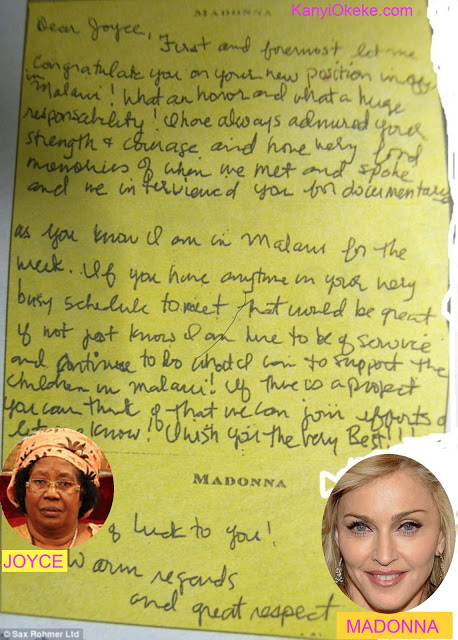 KanyiOkeke.com
MADONNA
Dear Joyce,
First and foremost let me
Congratulate you on your new position
in Malawi! What an honor and what a huge
responsability! I have always admired your
strength & courage and have very fond
memories of when we met and spoke
and we interviewed you for documentary
as you know I am in Malawi for the
week. If you have anytime in your very
busy schedule to meet that would be great
if not just know I am here to be of service
and continue to do what I can to support the
children in Malawi! If there is a project
you can think of that we can join efforts
know! I wish you the very Best!!!
MADONNA
of luck to you!
Warm regards
and great respect
JOYCE
MADONNA
© Sax Rohmer Ltd